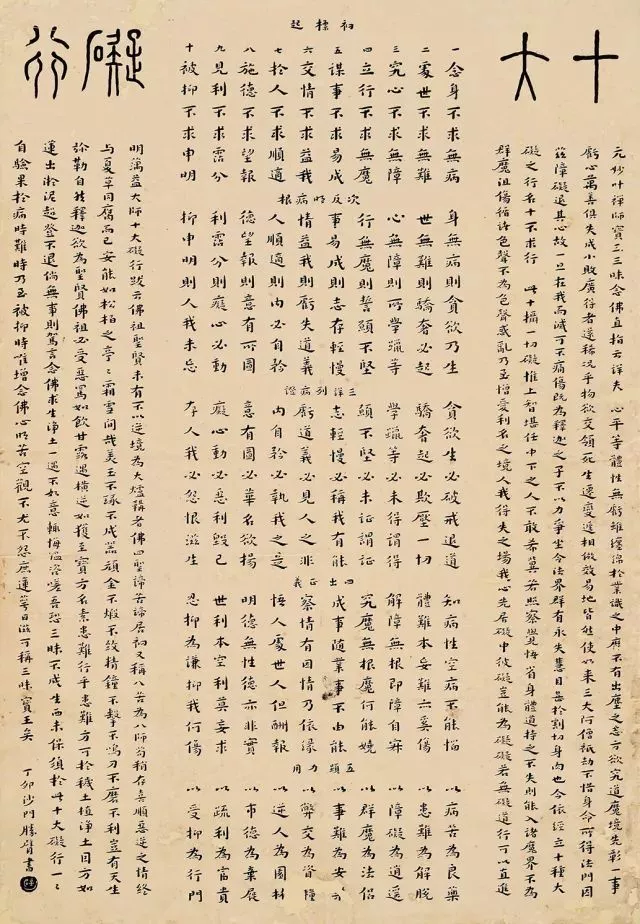 十大礙行
元妙叶禪師寶王三昧念佛直指云詳夫 心平等體性無虧雖纏綿於業識之中靡不有出塵之志方欲究道魔境先彰一事
虧心萬善俱失成小敗廣得者還稀況乎物欲交傾死生遷變遞相倣效易地皆然使如來三大阿僧祇劫不惜身命所得法門因
茲障礙退其心故一旦在我而滅可不痛傷既為釋迦之子不以力爭坐令法界群有永失慧目甚於割切身肉也今依經立十種大
礙之行名十不求行 此十種一切礙惟上智堪任中下之人不敢希冀若照察覺悟省身體道持之不失則能入諸魔界不為
群魔沮傷循諸色聲不為色聲惑亂乃至憎愛利名之境人我得失之場我心先居礙中彼礙豈能為礙礙若無礙道行可以直進
初標起
一念身不求無病
二處世不求無難
三究心不求無障
四立行不求無魔
五謀事不求易成
六交情不求益我
七於人不求順適
八施德不求望報
九見利不求霑分
十被抑不求申明
次反明病根
身無病則貪欲乃生
世無難則驕奢必起
心無障則所學躐等
行無魔則誓願不堅
事易成則志存輕慢
情益我則虧失道義
人順適則內必自矜
德望報則意有所圖
利霑分則癡心必動
抑申明則人我未忘
三詳列病證
貪欲生必破戒退道
驕奢起必欺壓一切
學躐等必未得謂得
願不堅必未証謂証
志輕慢必稱我有能
虧道義必見人之非
內自矜必執我之是
意有圖必華名欲揚
癡心動必惡利毀己
存人我必怨恨滋生
四出正義
知病性空病不能惱
體難本妄難亦奚傷
解障無根即障自寂
究魔無根魔何能嬈
成事隨業事不由能
察情有因情乃依緣
悟人處世人但酬報
明德無性德亦非實
世利本空利莫妄求
忍抑為謙抑我何傷
五顯力用
以病苦為良藥
以患難為解脫
以障礙為逍遙
以群魔為法侶
以事難為安樂
以弊交為資糧
以逆人為園林
以市德為棄屣
以疏利為富貴
以受抑為行門
明蕅益大師十大礙行跋云佛祖聖賢未有不以逆境為大爐鞴者佛四聖諦苦諦居初又稱八苦為八師苟稍存喜順惡逆之情終
与夏草同腐而已安能如松柏之亭亭霜雪間哉美玉不琢不成器頑金不煅不放精鐘不擊不鳴刀不磨不利豈有天生
彌勒自然釋迦欲為聖賢佛祖必受惡罵如飲甘露遇橫逆如獲至寶方名素患難行乎患難方可於穢土植淨土因方如
蓮出淤泥超登不退倘無事則駕言念佛求生淨土一遇不如意輒悔溢咨嗟吾恐三昧不成生西未保須於此十大礙行一一
自驗果於病時難時乃至被抑時唯增念佛心明苦空觀不尤不怨庶蓮萼日滋可稱三昧寶王矣
丁卯沙門勝賢書